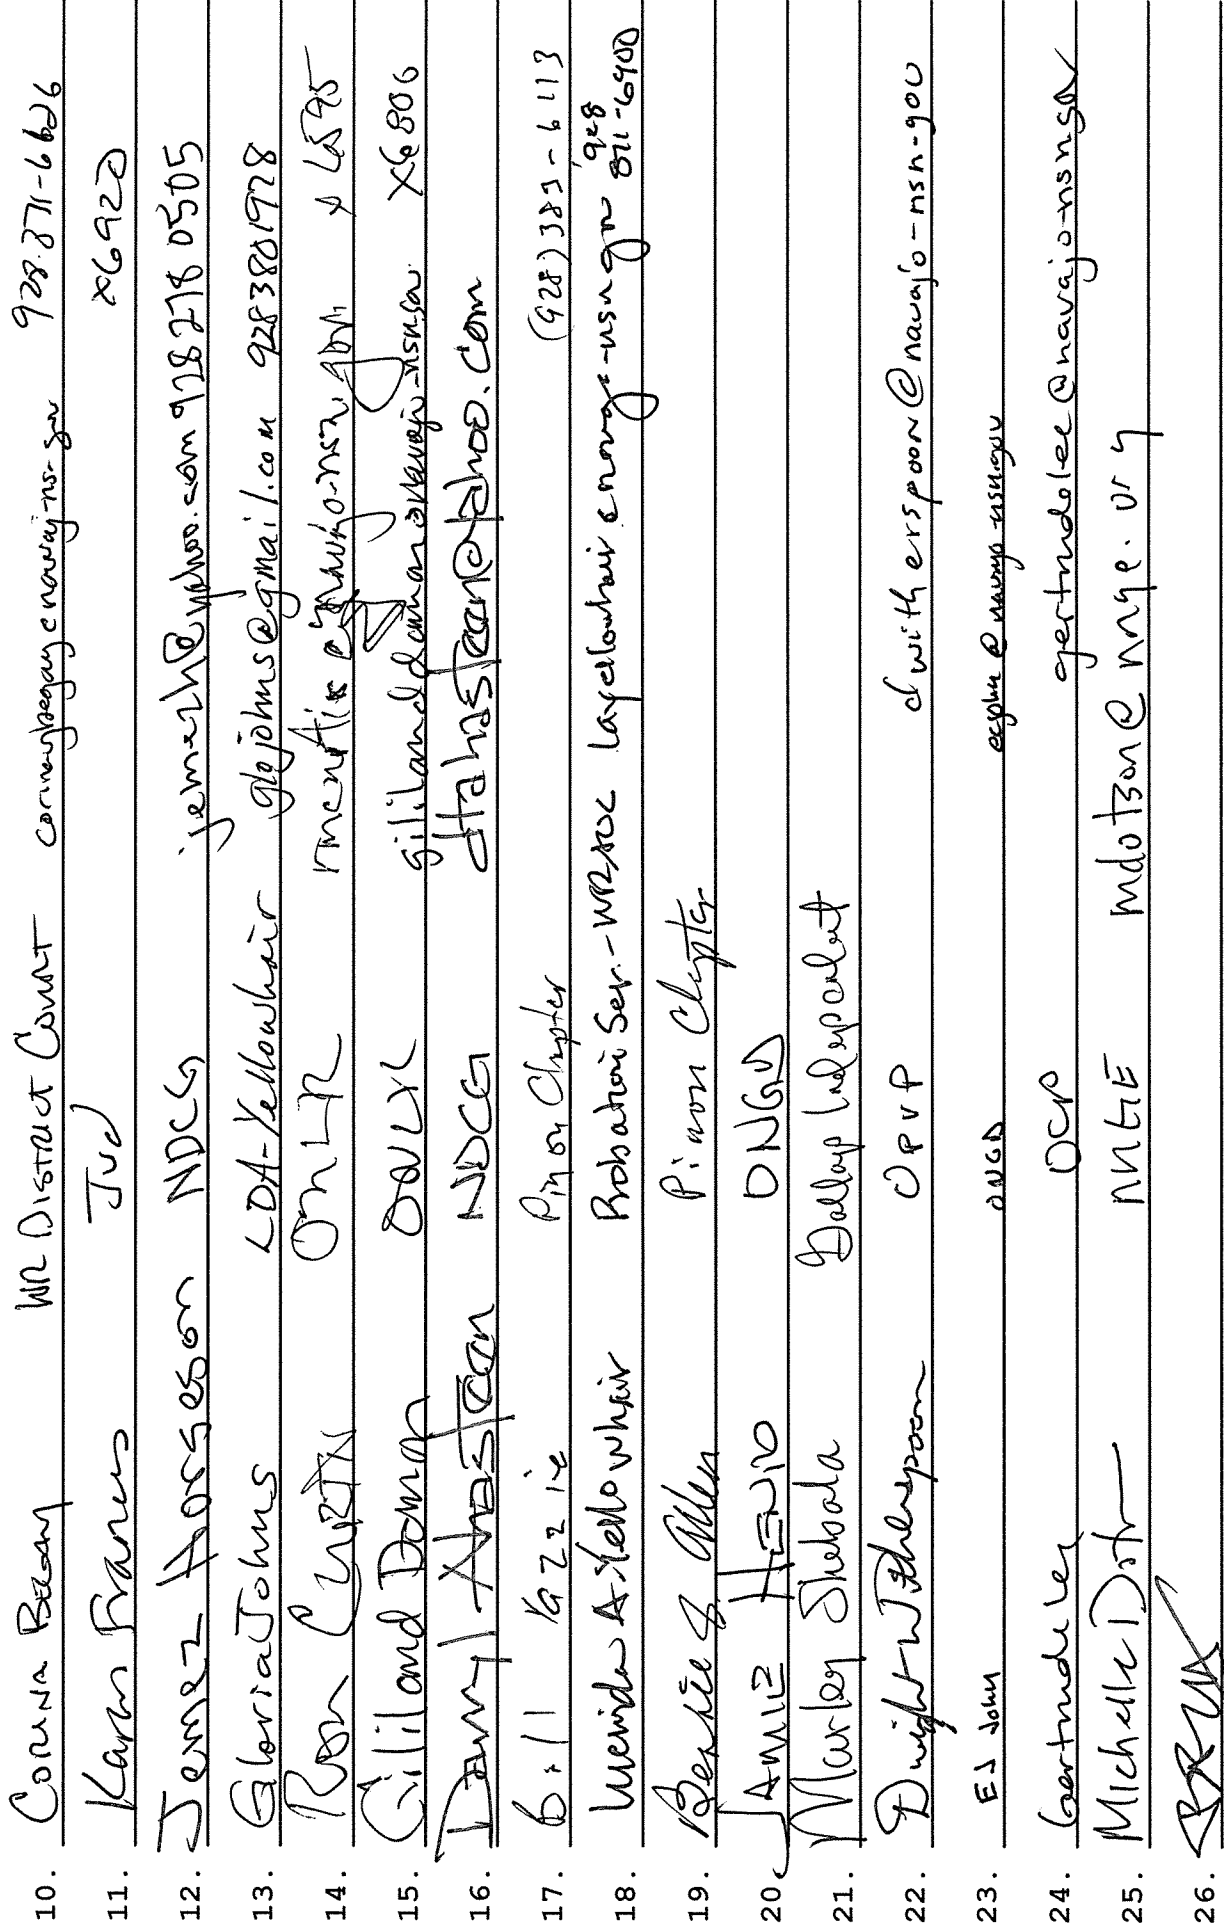 10. CORINA BEGAY WR DISTRICT COURT corinabegay@navajo-nsn.gov 928-871-6626
11. Karen Francis Jud x6920
12. Jemez Horseson NDCG jemezh@yahoo.com 928 278 0505
13. Gloria Johns LDA-Yellowhair glojohns@gmail.com 9283801928
14. Ron CURTIS ONLR rncurtis@navajo-nsn.gov x 6595
15. Gililand Damon ONLR gililanddamon@navajo-nsn.gov X6806
16. Darryl Ahasteen NDCG dtahasteen@yahoo.com
17. Bill Yazzie Pinon Chapter (928) 383-6113
18. Lucinda A. Yellowhair Probation Ser. - WRJDC layellowhair@navajo-nsn.gov 928
19. Bessie S. Allen Pinon Chapter
20. JAMIE HENIO ONGD
21. Marley Shebala Gallup Independent
22. Dwight Witherspoon OPVP dwitherspoon@navajo-nsn-gov
23. EJ John ONGD @navajo-nsn.gov
24. Gertrude Lee OCP gertrudelee@navajo-nsn.gov
25. Michelle Dotson NNGE mdotson@nnge.org
26.